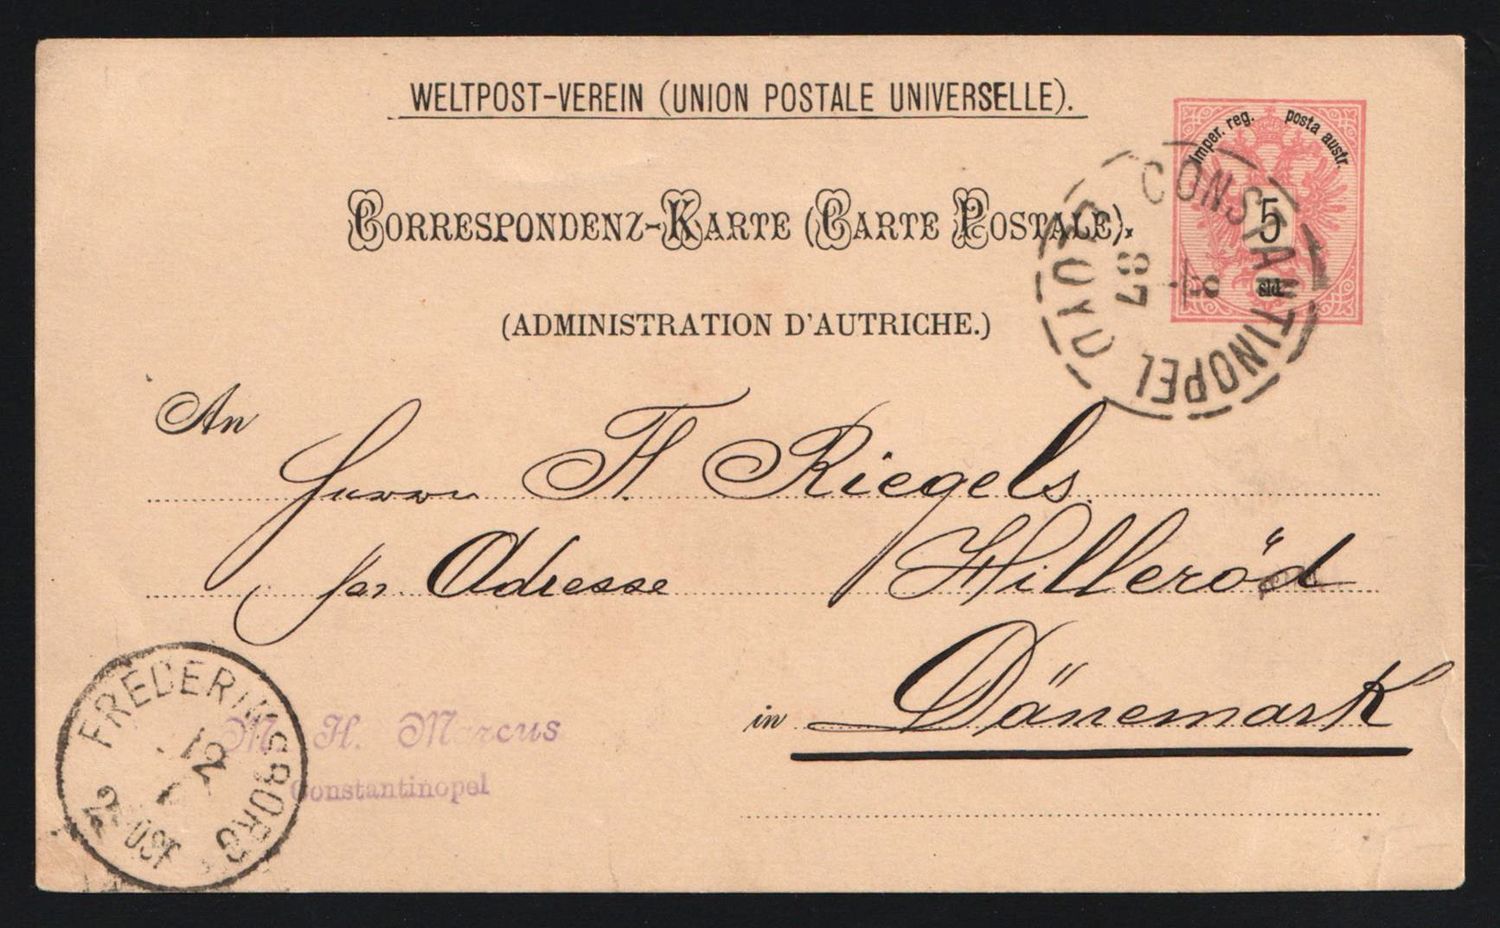 WELTPOST-VEREIN (UNION POSTALE UNIVERSELLE).
Imper. reg. posta austr.
5
sld.
CORRESPONDENZ-KARTE (CARTE POSTALE).
CONSTANTINOPEL
87
(ADMINISTRATION D'AUTRICHE.)
An
Herrn F. Riegels
Adresse Hilleröd
in Dänemark
FREDERIKSBORG
12
2
M. H. Marcus
Constantinopel